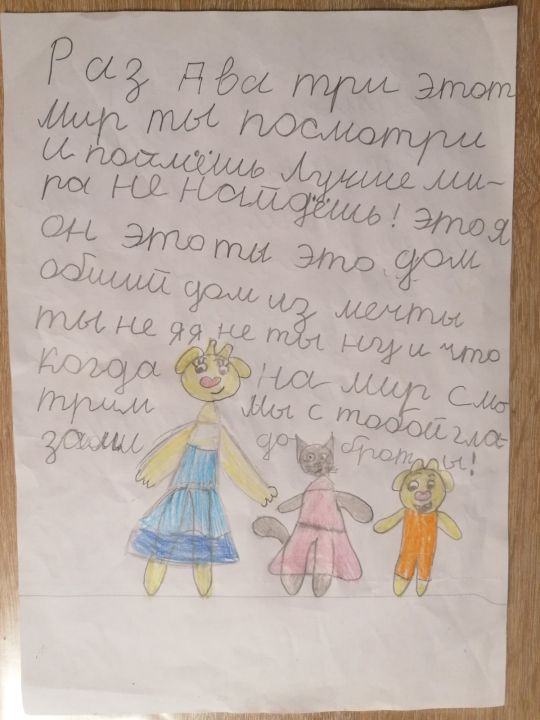 Раз два три этот
мир ты посмотри
и поймёшь лучше ми-
ра не найдёшь! это я
он это ты это дом
общий дом из мечты
ты не я я не ты ну и что
когда на мир смо
трим мы с тобой гла-
зами доброты!